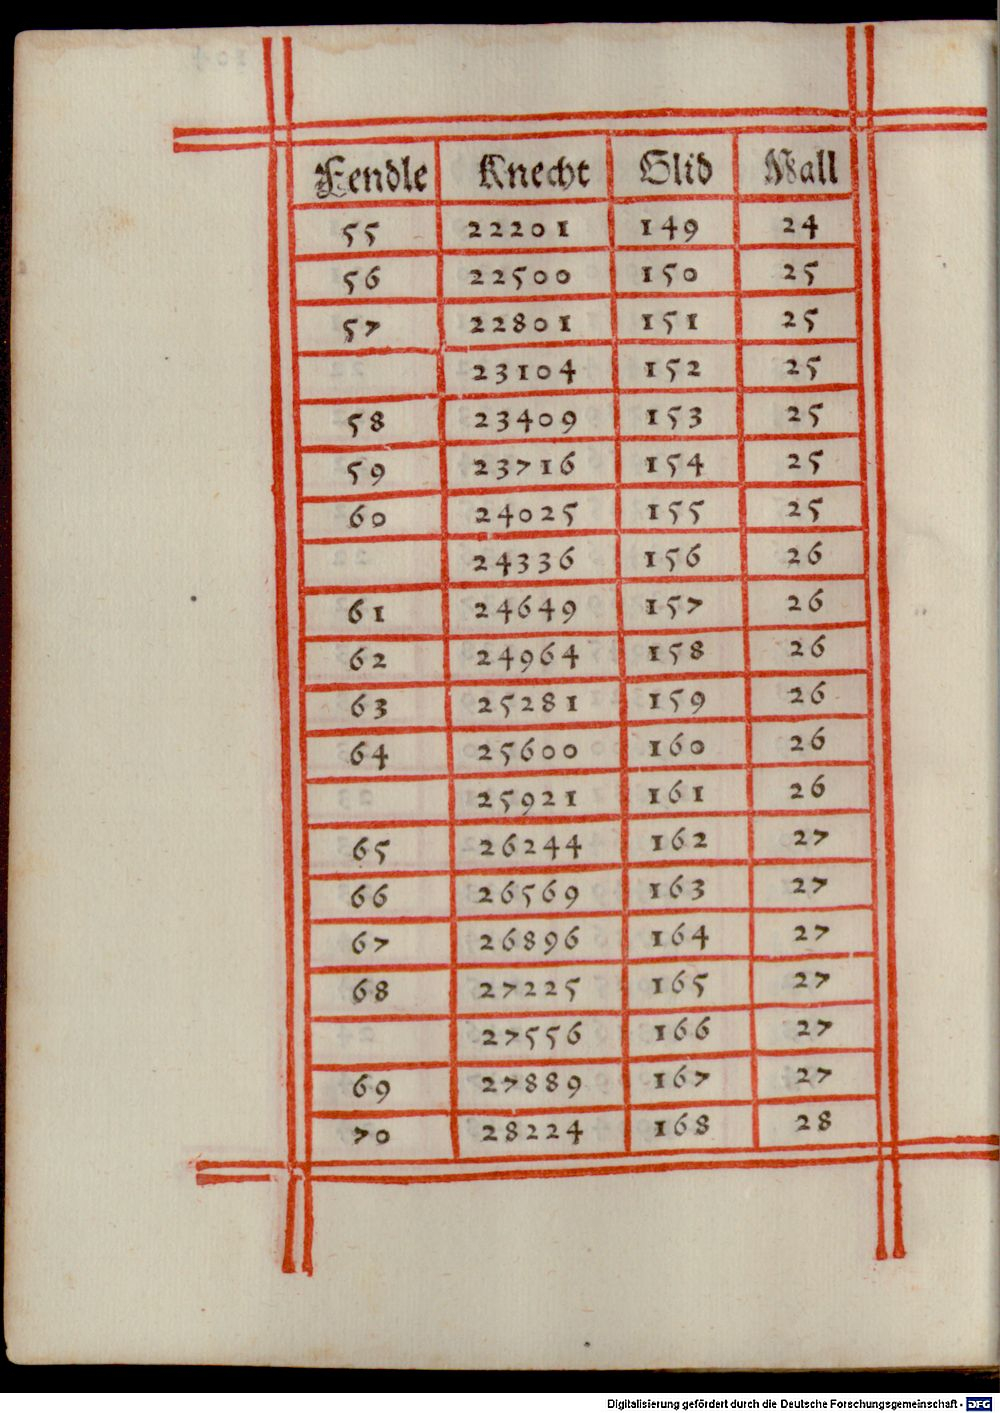 Fendle Knecht Glid Wall
55 22201 149 24
56 22500 150 25
57 22801 151 25
23104 152 25
58 23409 153 25
59 23716 154 25
60 24025 155 25
24336 156 26
61 24649 157 26
62 24964 158 26
63 25281 159 26
64 25600 160 26
25921 161 26
65 26244 162 27
66 26569 163 27
67 26896 164 27
68 27225 165 27
27556 166 27
69 27889 167 27
70 28224 168 28
Digitalisierung gefördert durch die Deutsche Forschungsgemeinschaft - DFG